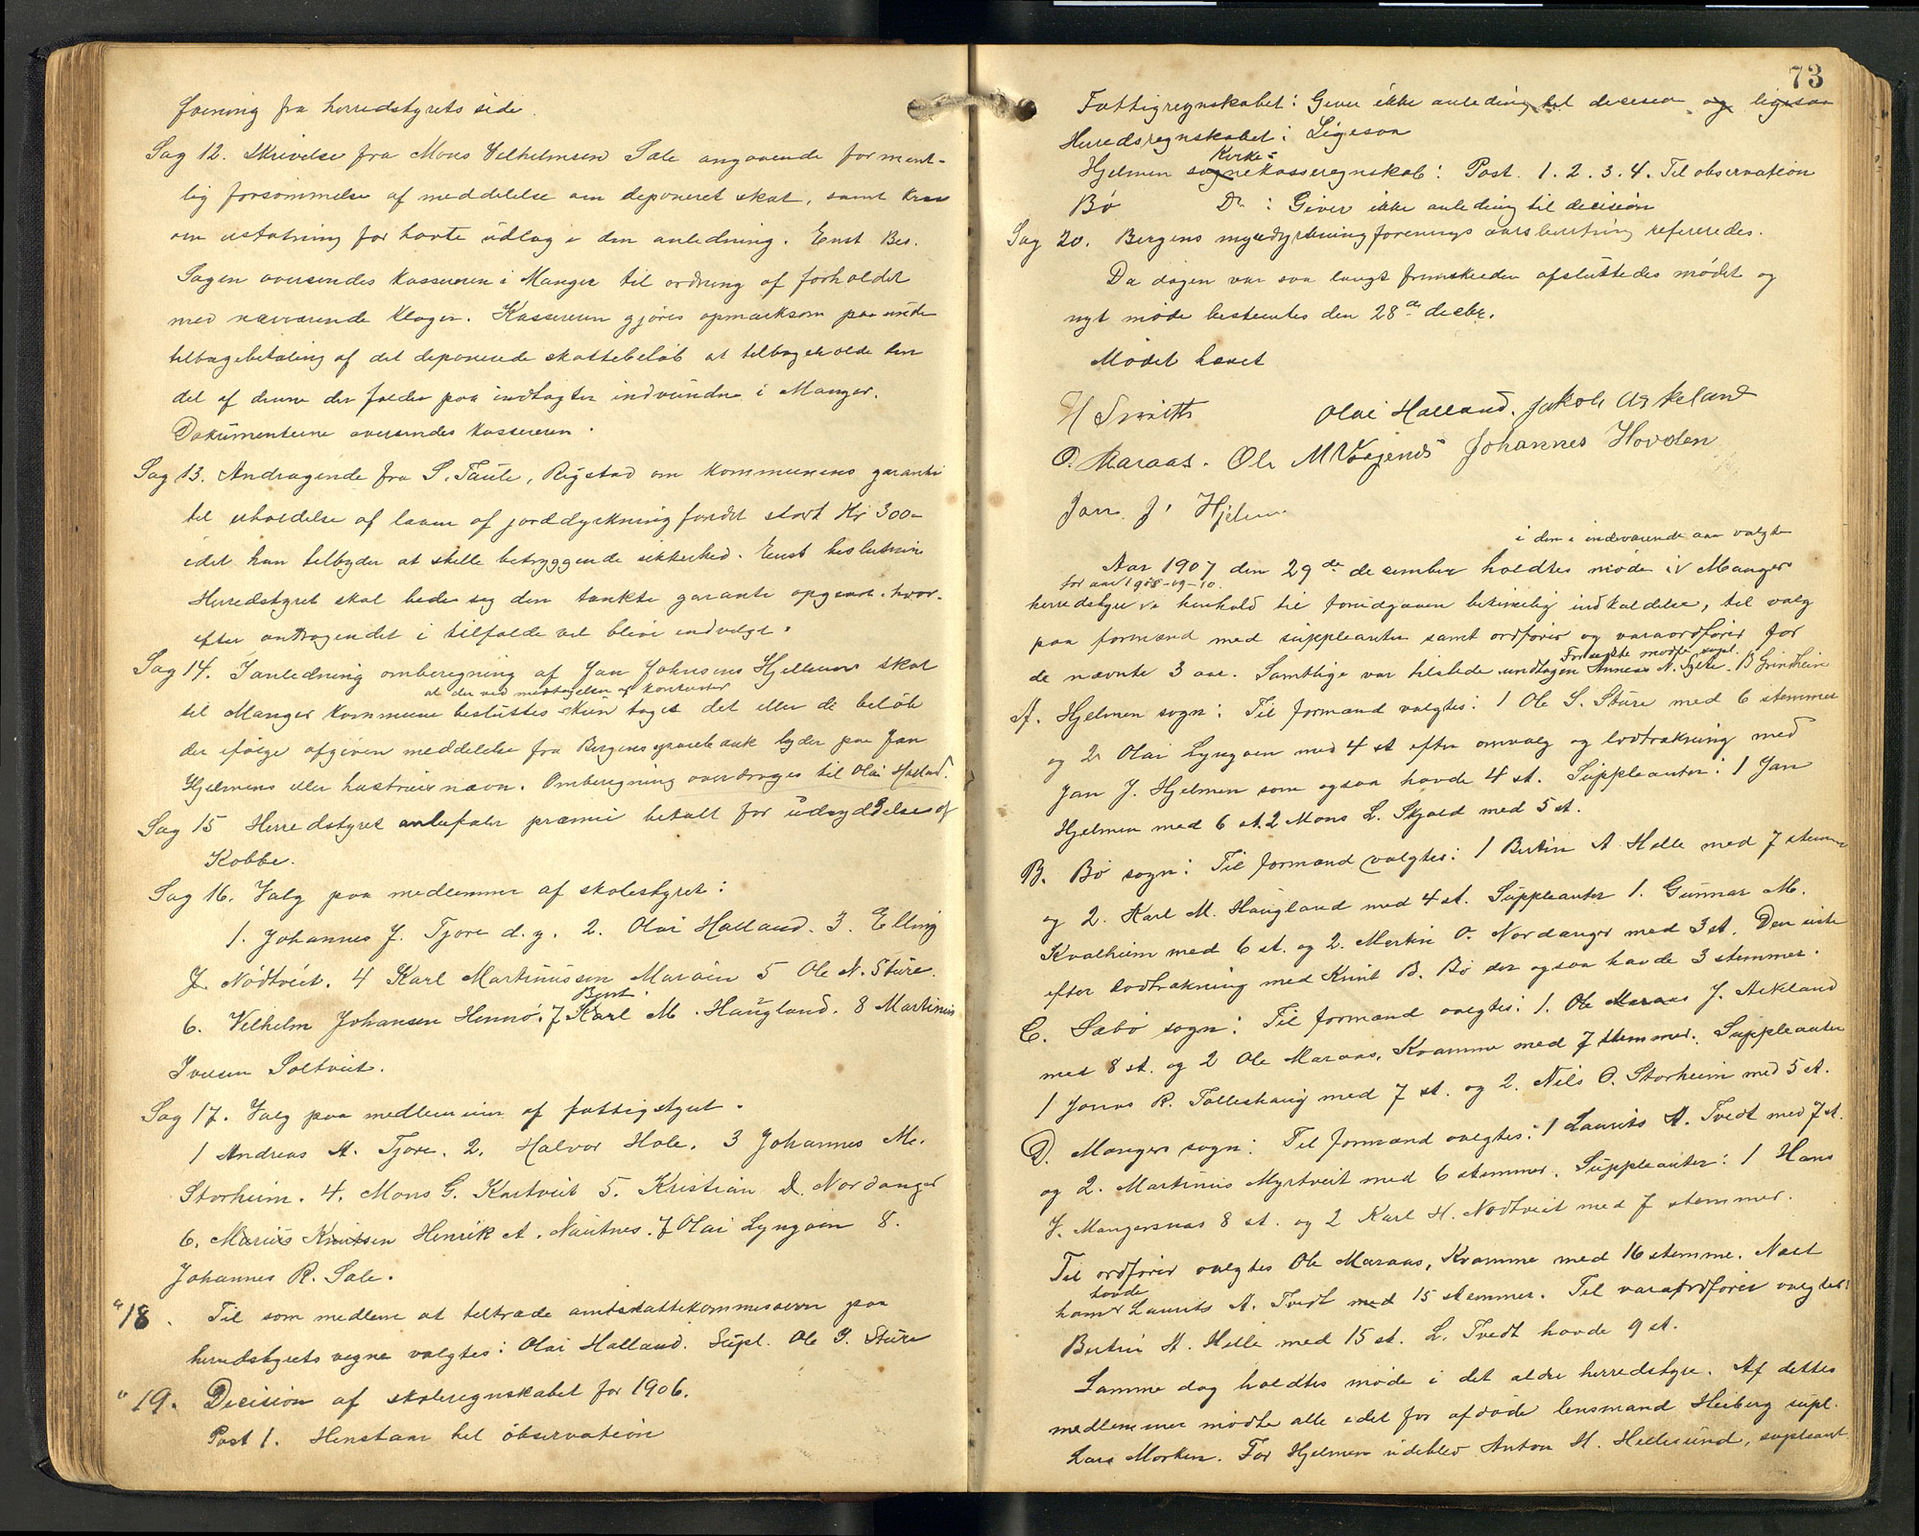 føining fra herredstyrets side.
Sag 12. Skrivelse fra Mons Vilhelmsen Sæle angaaende forment-
lig forsømmelse af meddelelse om deponeret skat, samt krav
om erstatning for havte udlæg i den anledning. Enst. Bes.
Sagen oversendes kassereren i Manger til ordning af forholdet
med nærværende klager. Kassereren gjøres opmærksom paa under
tilbagebetaling af det deponerede skattebeløb at tilbageholde den
del af denne der falder paa indtægter indvundne i Manger.
Dokumenterne oversendes kassereren.
Sag 13. Andragende fra S. Taule, Rigstad om kommunens garanti
til erholdelse af laan af jorddyrkningsfondet stort Kr 300-
idet han tilbyder at stille betryggende sikkerhed. Enst beslutning
Herredstyret skal bede sig den tænkte garanti opgivet. hvor-
efter andragendet i tilfælde vil blive indvilget.
Sag 14. I anledning omberegning af Jan Johnsens Hjelmens skat
at der ved modtagelsen af kontanter
til Manger kommune besluttes kun toges det eller de beløb
der ifølge afgiven meddelelse fra Bergens sparebank lyder paa Jan
Hjelmens eller hustruens navn. Omberegning overdrages til Olai Halland.
Sag 15 Herredstyret anbefaler præmie betalt for udryddelse af
Kobbe.
Sag 16. Valg paa medlemmer af skolestyret:
1. Johannes J. Tjore d.y. 2. Olai Halland. 3. Elling
J. Nødtveit. 4 Karl Martinussen Maraas 5 Ole N. Sture.
Bernt
6. Vilhelm Johansen Hennø. 7 Karl M. Haugland. 8 Martinus
Iversen Soltveit.
Sag 17. Valg paa medlemmer af fattigstyret.
1 Andreas A. Tjore. 2. Halvor Hole. 3 Johannes M.
Storheim. 4. Mons G. Kartveit 5. Kristian D. Nordanger
6. Marius Knutsen Henrik A. Nautnes. 7 Olai Lyngøen 8.
Johannes R. Sæle.
" 18. Til som medlem at tiltræde amtsskattekommissionen paa
herredstyrets vegne valgtes: Olai Halland. Supl. Ole S. Sture
" 19. Decision af skoleregnskabet for 1906.
Post 1. Henstaar til observation
73
Fattigregnskabet: Giver ikke anledning til decision og ligesaa
Herredsregnskabet: Ligesaa
Kirke=
Hjelmen sognekasseregnskab: Post. 1. 2. 3. 4. Til observation
Bø Do : Giver ikke anledning til decision
Sag 20. Bergens myrdyrkningsforenings aarsberetning refereredes.
Da dagen var saa langt fremskreden afsluttedes mødet og
nyt møde bestemtes den 28de decbr.
Mødet hævet
H Smith Olai Halland. Jakob Askeland
O. Maraas. Ole M Johannes Hovden
Jan J. Hjelmen
i den i indeværende aar valgte
Aar 1907 den 29de desember holdtes møde i Manger
for aar 1908-09-10.
herredstyre i henhold til forudgaaen betimelig indkaldelse, til valg
paa formænd med suppleanter samt ordfører og varaordfører for
For sidste mødte supl.
de nævnte 3 aar. Samtlige var tilstede undtagen Anneas N. Sylte. B Grindheim
A. Hjelmen sogn: Til formænd valgtes: 1 Ole S. Sture med 6 stemmer
og 2 Olai Lyngøen med 4 st efter omvalg og lodtrækning med
Jan J. Hjelmen som ogsaa havde 4 st. Suppleanter: 1 Jan
Hjelmen med 6 st. 2 Mons L. Skjold med 5 st.
B. Bø sogn: Til formænd valgtes: 1 Bertin A Helle med 7 stemmer
og 2. Karl M. Haugland med 4 st. Suppleanter 1. Gunnar M.
Kvalheim med 6 st. og 2. Martin O. Nordanger med 3 st. Den siste
efter lodtrækning med Knut B. Bø der ogsaa havde 3 stemmer.
C. Sæbø sogn: Til formænd valgtes: 1. Ole Maraas J. Askland
med 8 st. og 2 Ole Maraas, Kvamme med 7 stemmer. Suppleanter
1 Jonas R. Tolleshaug med 7 st. og 2. Nils O. Storheim med 5 st.
D. Manger sogn: Til formænd valgtes: 1 Laurits A. Tvedt med 7 st.
og 2. Martinus Myrtveit med 6 stemmer. Suppleanter: 1 Hans
J. Mangersnæs 8 st. og 2 Karl H. Nødtveit med 7 stemmer.
Til ordfører valgtes Ole Maraas, Kvamme med 16 stemme. Næst
havde
ham Laurits A. Tvedt med 15 stemmer. Til varaordfører valgtes:
Bertin A. Helle med 15 st. L. Tvedt havde 9 st.
Samme dag holdtes møde i det ældre herredstyre. Af dettes
medlemmer mødte alle idet for afdøde lensmand Heiberg supl.
Lars Morken. For Hjelmen udeblev Anton H. Hellesund, supleant